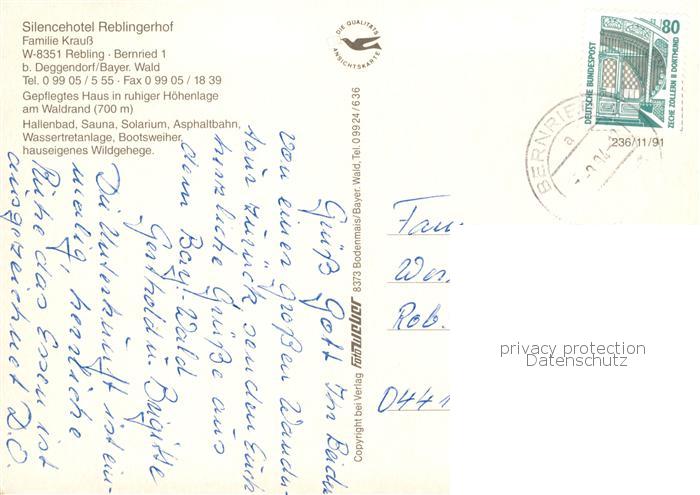 Silencehotel Reblingerhof
Familie Krauß
W-8351 Rebling · Bernried 1
b. Deggendorf/Bayer. Wald
Tel. 0 99 05 / 5 55 · Fax 0 99 05 / 18 39
Gepflegtes Haus in ruhiger Höhenlage
am Waldrand (700 m)
Hallenbad, Sauna, Solarium, Asphaltbahn,
Wassertretanlage, Bootsweiher,
hauseigenes Wildgehege.
DIE QUALITÄTS
ANSICHTSKARTE
DEUTSCHE BUNDESPOST
80
ZECHE ZOLLERN II DORTMUND
BERNRIE
a
236/11/91
Copyright bei Verlag foto weber 8373 Bodenmais/Bayer. Wald, Tel. 0 99 24 / 6 36
Grüß Gott
von einer großen Wander-
tour zurück, senden Euch
herzliche Grüße aus
dem Bay.-Wald
Gerthold u. Brigitte
Die Unterkunft ist ein-
malig, herrliche
Ruhe das Essen ist
ausgezeichnet D.O.
Fam
Wer
Rob.
0441
privacy protection
Datenschutz